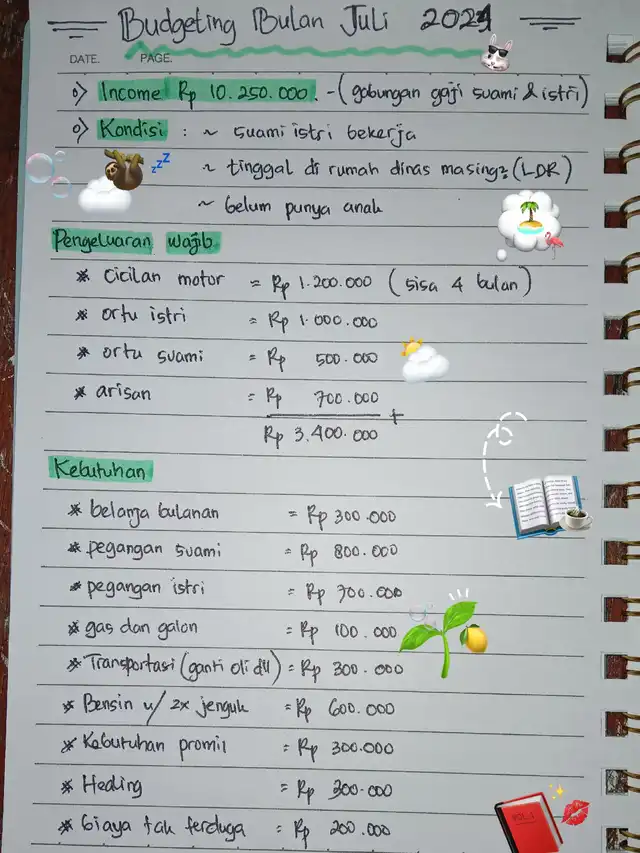 Budgeting Bulan Juli 2024
DATE. PAGE.
Income Rp 10.250.000. - (gabungan gaji suami & istri)
Kondisi : ~ suami istri bekerja
~ tinggal di rumah dinas masing2 (LDR)
~ belum punya anak
zzz
Pengeluaran wajib
* cicilan motor = Rp 1.200.000 (sisa 4 bulan)
* ortu istri = Rp 1.000.000
* ortu suami = Rp 500.000
* arisan = Rp 700.000
+
Rp 3.400.000
Kebutuhan
* belanja bulanan = Rp 300.000
* pegangan suami = Rp 800.000
* pegangan istri = Rp 700.000
* gas dan galon = Rp 100.000
* Transportasi (ganti oli dll) = Rp 300.000
* Bensin u/ 2x jenguk = Rp 600.000
* Kebutuhan promil = Rp 300.000
* Healing = Rp 300.000
* biaya tak terduga = Rp 200.000